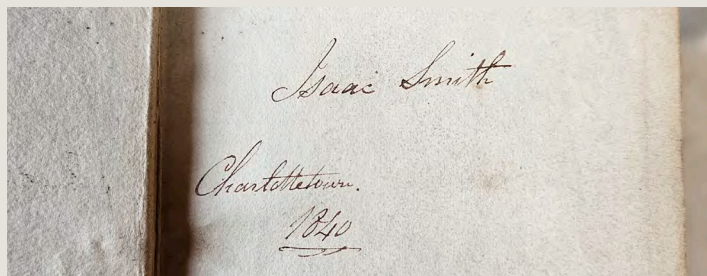 Isaac Smith
Charlottetown.
1840